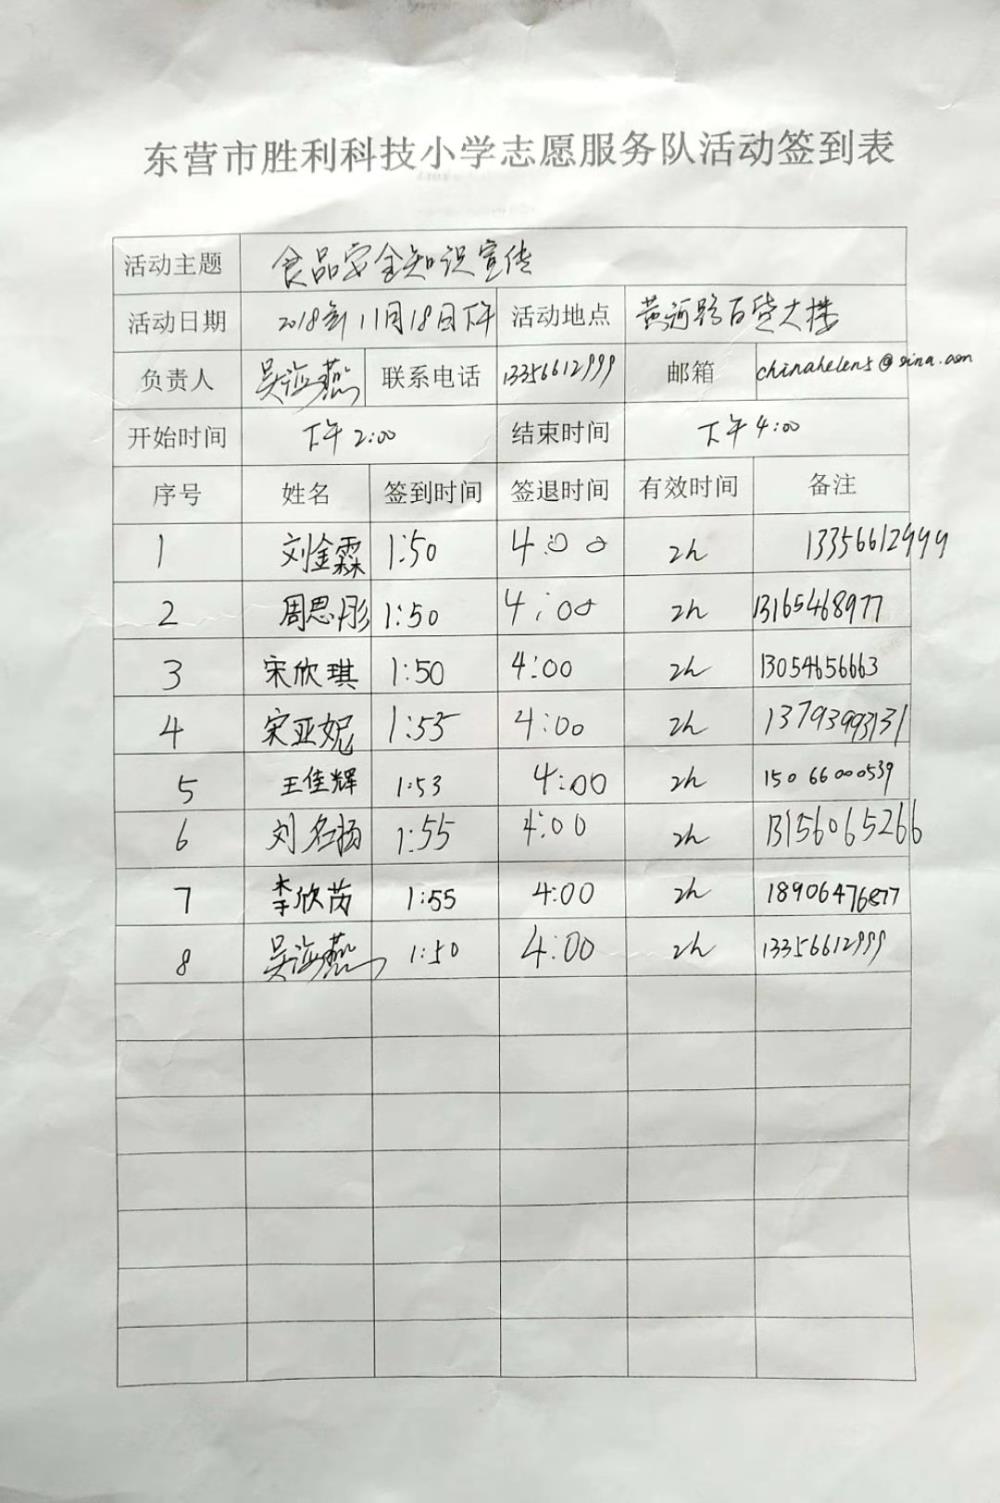 东营市胜利科技小学志愿服务队活动签到表
活动主题 食品安全知识宣传
活动日期 2018年11月18日下午 活动地点 黄河路百货大楼
负责人 吴海燕 联系电话 13356612999 邮箱 chinahelens@sina.com
开始时间 下午2:00 结束时间 下午4:00
序号 姓名 签到时间 签退时间 有效时间 备注
1 刘金霖 1:50 4:00 2h 13356612999
2 周思彤 1:50 4:00 2h 13165468977
3 宋欣琪 1:50 4:00 2h 13054656663
4 宋亚妮 1:55 4:00 2h 13793993131
5 王佳辉 1:53 4:00 2h 15066000539
6 刘名扬 1:55 4:00 2h 13156065266
7 李欣芮 1:55 4:00 2h 18906476877
8 吴海燕 1:50 4:00 2h 13356612999